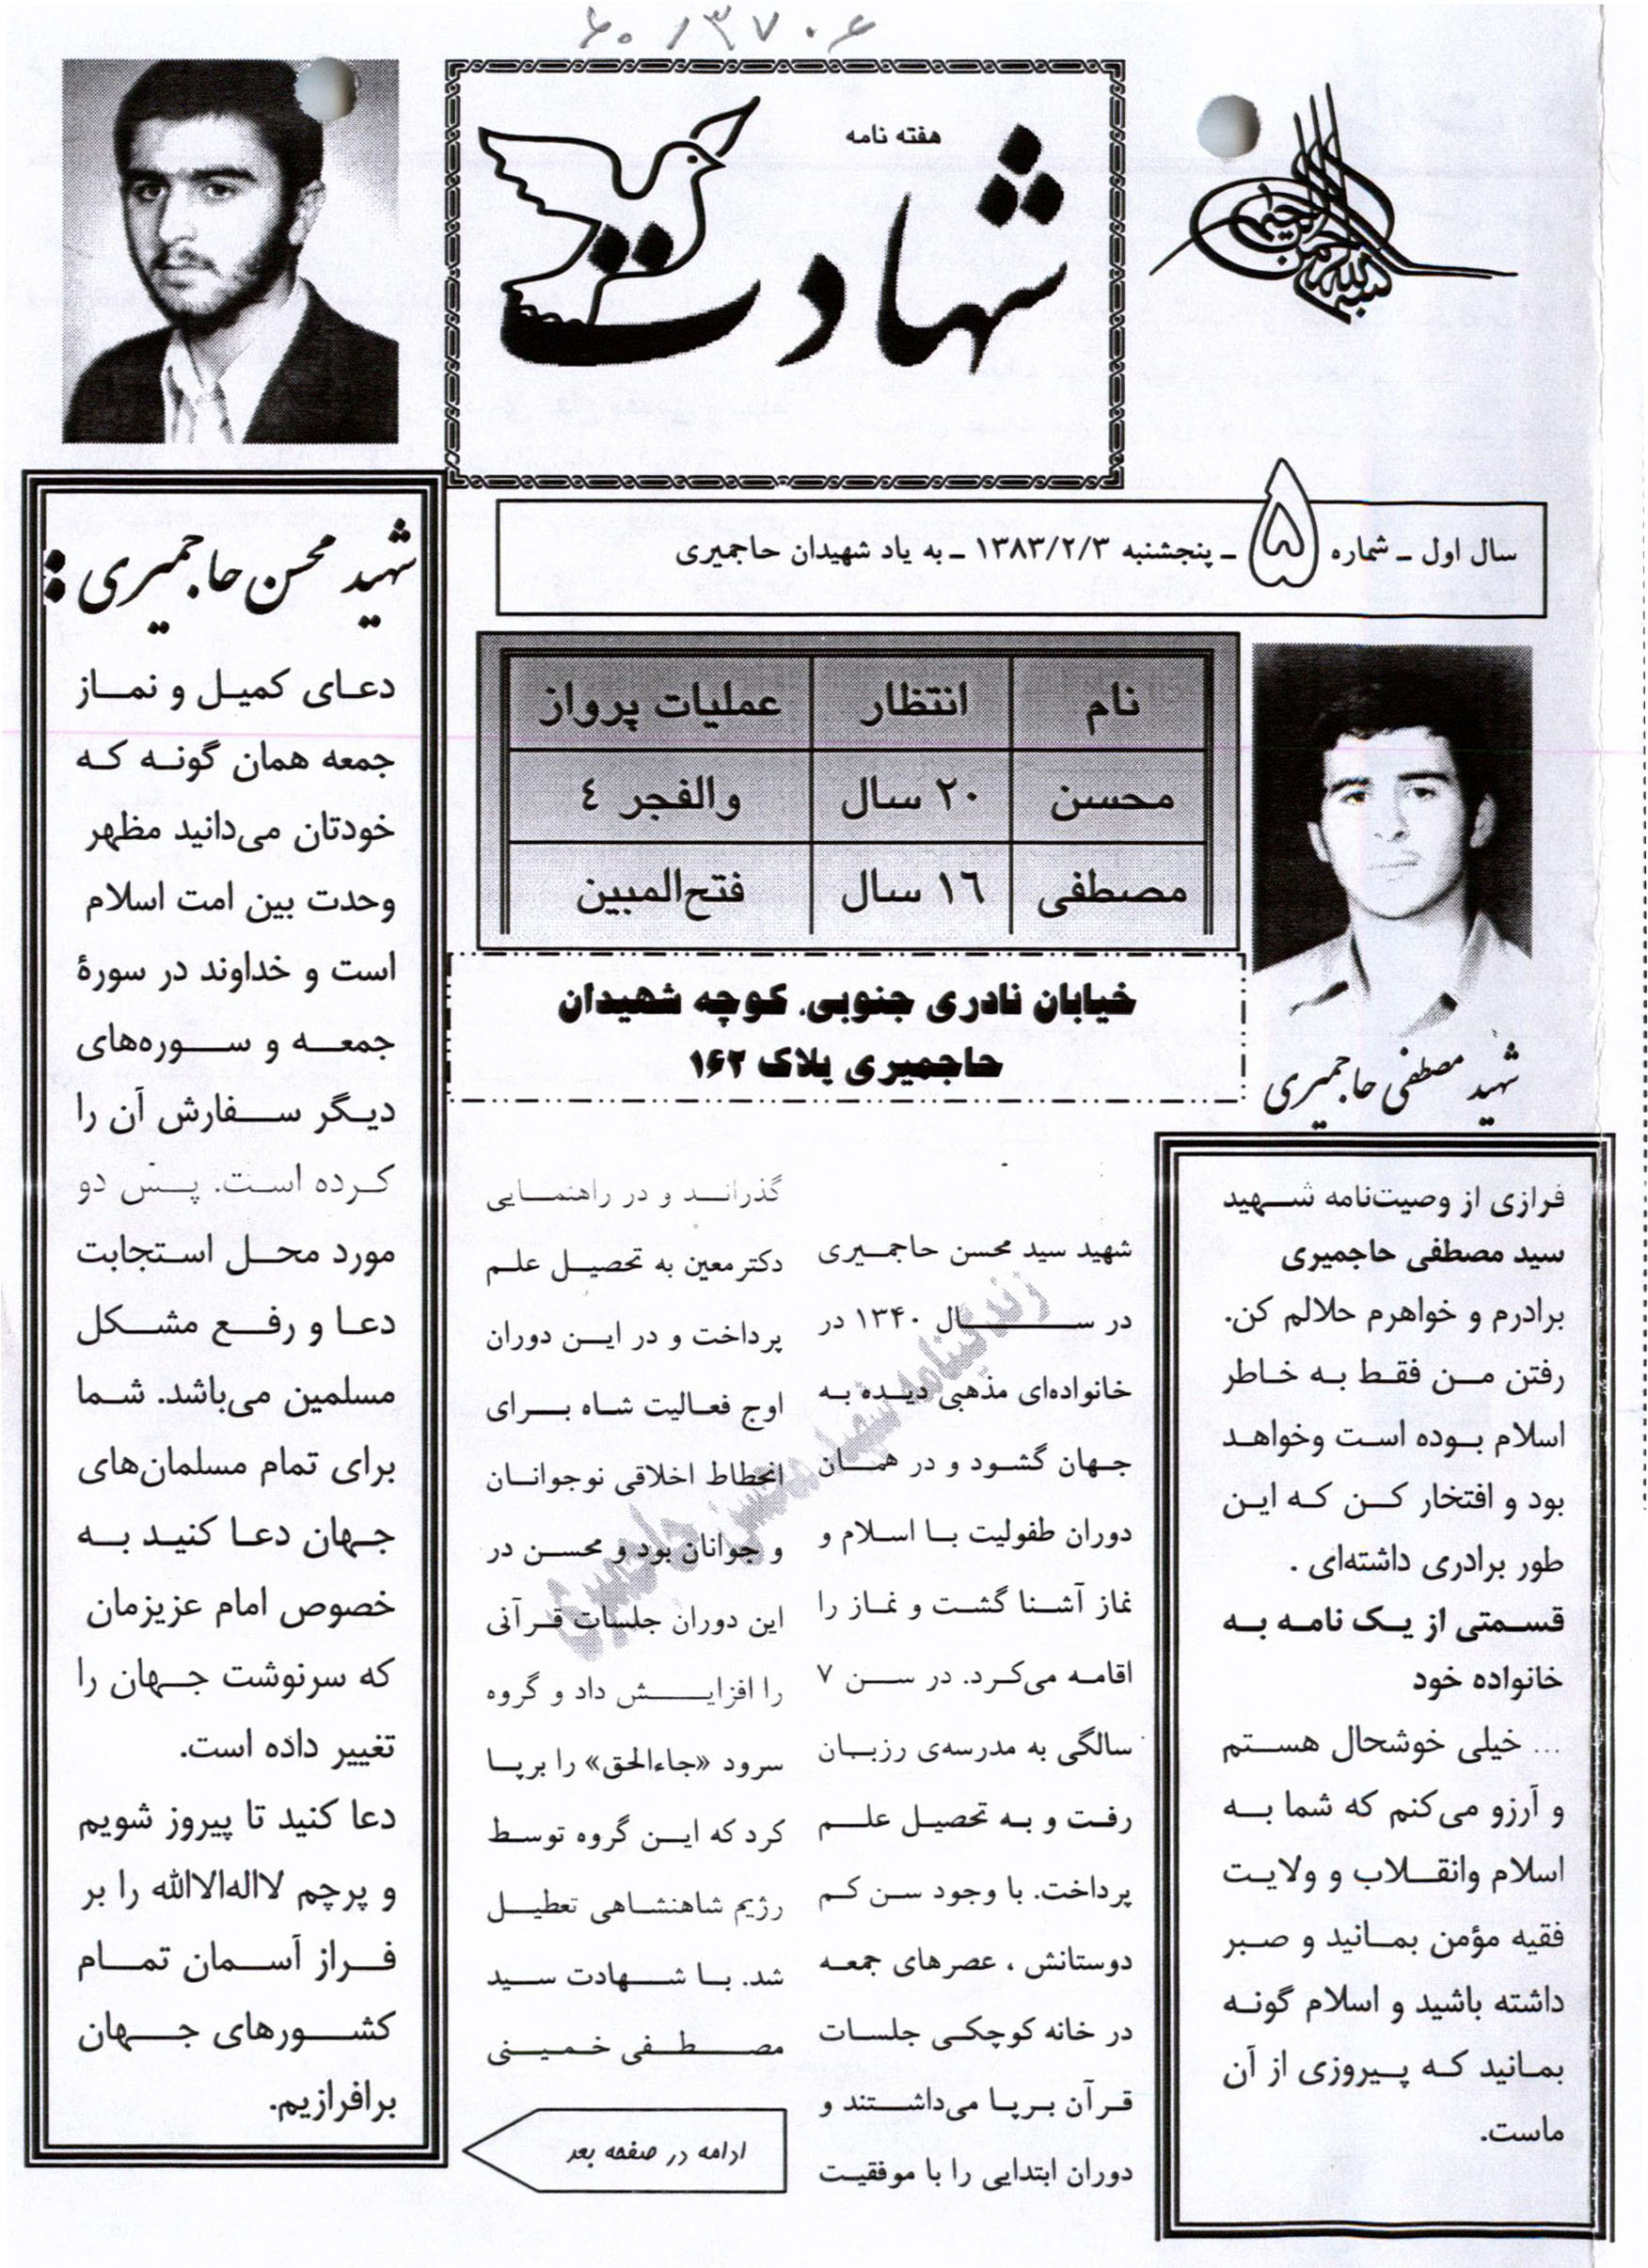 ۶۰/۳۷۰۶
بسم الله الرحمن الرحیم
هفته نامه
شهادت
سال اول ـ شماره ۵ ـ پنجشنبه ۱۳۸۳/۲/۳ ـ به یاد شهیدان حاجمیری
نام انتظار عملیات پرواز
محسن ۲۰ سال والفجر ٤
مصطفی ۱٦ سال فتح‌المبین
خیابان نادری جنوبی. کوچه شهیدان
حاجمیری پلاک ۱۶۲
شهید مصطفی حاجمیری
فرازی از وصیت‌نامه شهید
سید مصطفی حاجمیری
برادرم و خواهرم حلالم کن.
رفتن من فقط به خاطر
اسلام بوده است وخواهد
بود و افتخار کن که این
طور برادری داشته‌ای .
قسمتی از یک نامه به
خانواده خود
... خیلی خوشحال هستم
و آرزو می‌کنم که شما به
اسلام وانقلاب و ولایت
فقیه مؤمن بمانید و صبر
داشته باشید و اسلام گونه
بمانید که پیروزی از آن
ماست.
زندگینامه شهید محسن حاجمیری
شهید سید محسن حاجمیری
در سال ۱۳۴۰ در
خانواده‌ای مذهبی دیده به
جهان گشود و در همان
دوران طفولیت با اسلام و
نماز آشنا گشت و نماز را
اقامه می‌کرد. در سن ۷
سالگی به مدرسه‌ی رزبان
رفت و به تحصیل علم
پرداخت. با وجود سن کم
دوستانش ، عصرهای جمعه
در خانه کوچکی جلسات
قرآن برپا می‌داشتند و
دوران ابتدایی را با موفقیت
گذراند و در راهنمایی
دکتر معین به تحصیل علم
پرداخت و در این دوران
اوج فعالیت شاه برای
انحطاط اخلاقی نوجوانان
و جوانان بود و محسن در
این دوران جلسات قرآنی
را افزایش داد و گروه
سرود «جاءالحق» را برپا
کرد که این گروه توسط
رژیم شاهنشاهی تعطیل
شد. با شهادت سید
مصطفی خمینی
ادامه در صفحه بعد
شهید محسن حاجمیری :
دعای کمیل و نماز
جمعه همان گونه که
خودتان می‌دانید مظهر
وحدت بین امت اسلام
است و خداوند در سورهٔ
جمعه و سوره‌های
دیگر سفارش آن را
کرده است. پس دو
مورد محل استجابت
دعا و رفع مشکل
مسلمین می‌باشد. شما
برای تمام مسلمان‌های
جهان دعا کنید به
خصوص امام عزیزمان
که سرنوشت جهان را
تغییر داده است.
دعا کنید تا پیروز شویم
و پرچم لااله‌الاالله را بر
فراز آسمان تمام
کشورهای جهان
برافرازیم.